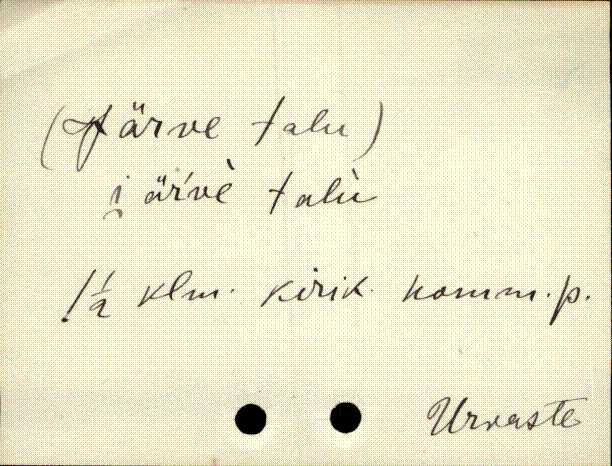 (Järve talu)
i̯ äŕvè talù
1½ klm. kirik. homm. p.
Urvaste